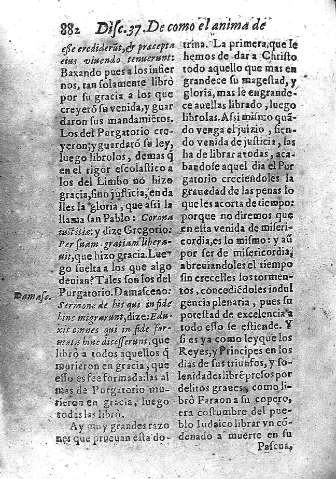 882 Disc.37. De como el anima de
este crediderũt, & præcepta
eius viuendo tenuerunt:
Baxando pues a los infier
nos, tan solamente libró
por su gracia a los que
creyerõ su venida, y guar
daron sus mandamiẽtos.
Los del Purgatorio cre
yeron, y guardarõ su ley,
luego librolos, demas q̃
en el rigor escolastico a
los del Limbo nó hizo
gracia, sino justicia, en da
lles la gloria, que assi la
llama san Pablo: Corona
iustitiæ: y dize Gregorio.
Per suam gratiam libera-
uit, que hizo gracia. Lue
go suelta a los que algo
deuian? Tales son los del
Purgatorio. Damasceno:
Damasc.
Sermone de his qui in fide
hinc migrarunt, dize: Edu-
xit omnes qui in fide for-
mata hinc discesserunt, que
libró a todos aquellos q̃
murieron en gracia, que
esso es fee formada: las al
mas de Purgatorio mu-
rieron en gracia, luego
todas las libró.
Ay muy grandes razo
nes que prueuan esta do-
trina. La primera, que le
hemos de dar a Christo
todo aquello que mas en
grandece su magestad, y
gloria, mas le engrande-
ce auellas librado, luego
librolas. Assi mismo quã-
do venga el juizio, sien-
do venida de justicia, las
ha de librar a todas, aca-
bandose aquel dia el Pur
gatorio creciendoles la
grauedad de las penas lo
que les acorta de tiempo:
porque no diremos que
en esta venida de miseri-
cordia, es lo mismo: y aũ
por ser de misericordia,
abreuiandoles el tiempo
sin crecelles los tormen-
tos, concediẽdoles indul
gencia plenaria, pues su
potestad de excelencia a
todo esso se estiende. Y
si es ya como ley que los
Reyes, y Principes en los
dias de sus triunfos, y so-
lenidades librẽ presos por
delitos graues, como li-
bró Faraon a su copero,
era costumbre del pue-
blo Iudaico librar vn cõ-
denado a muerte en su
Pascua,